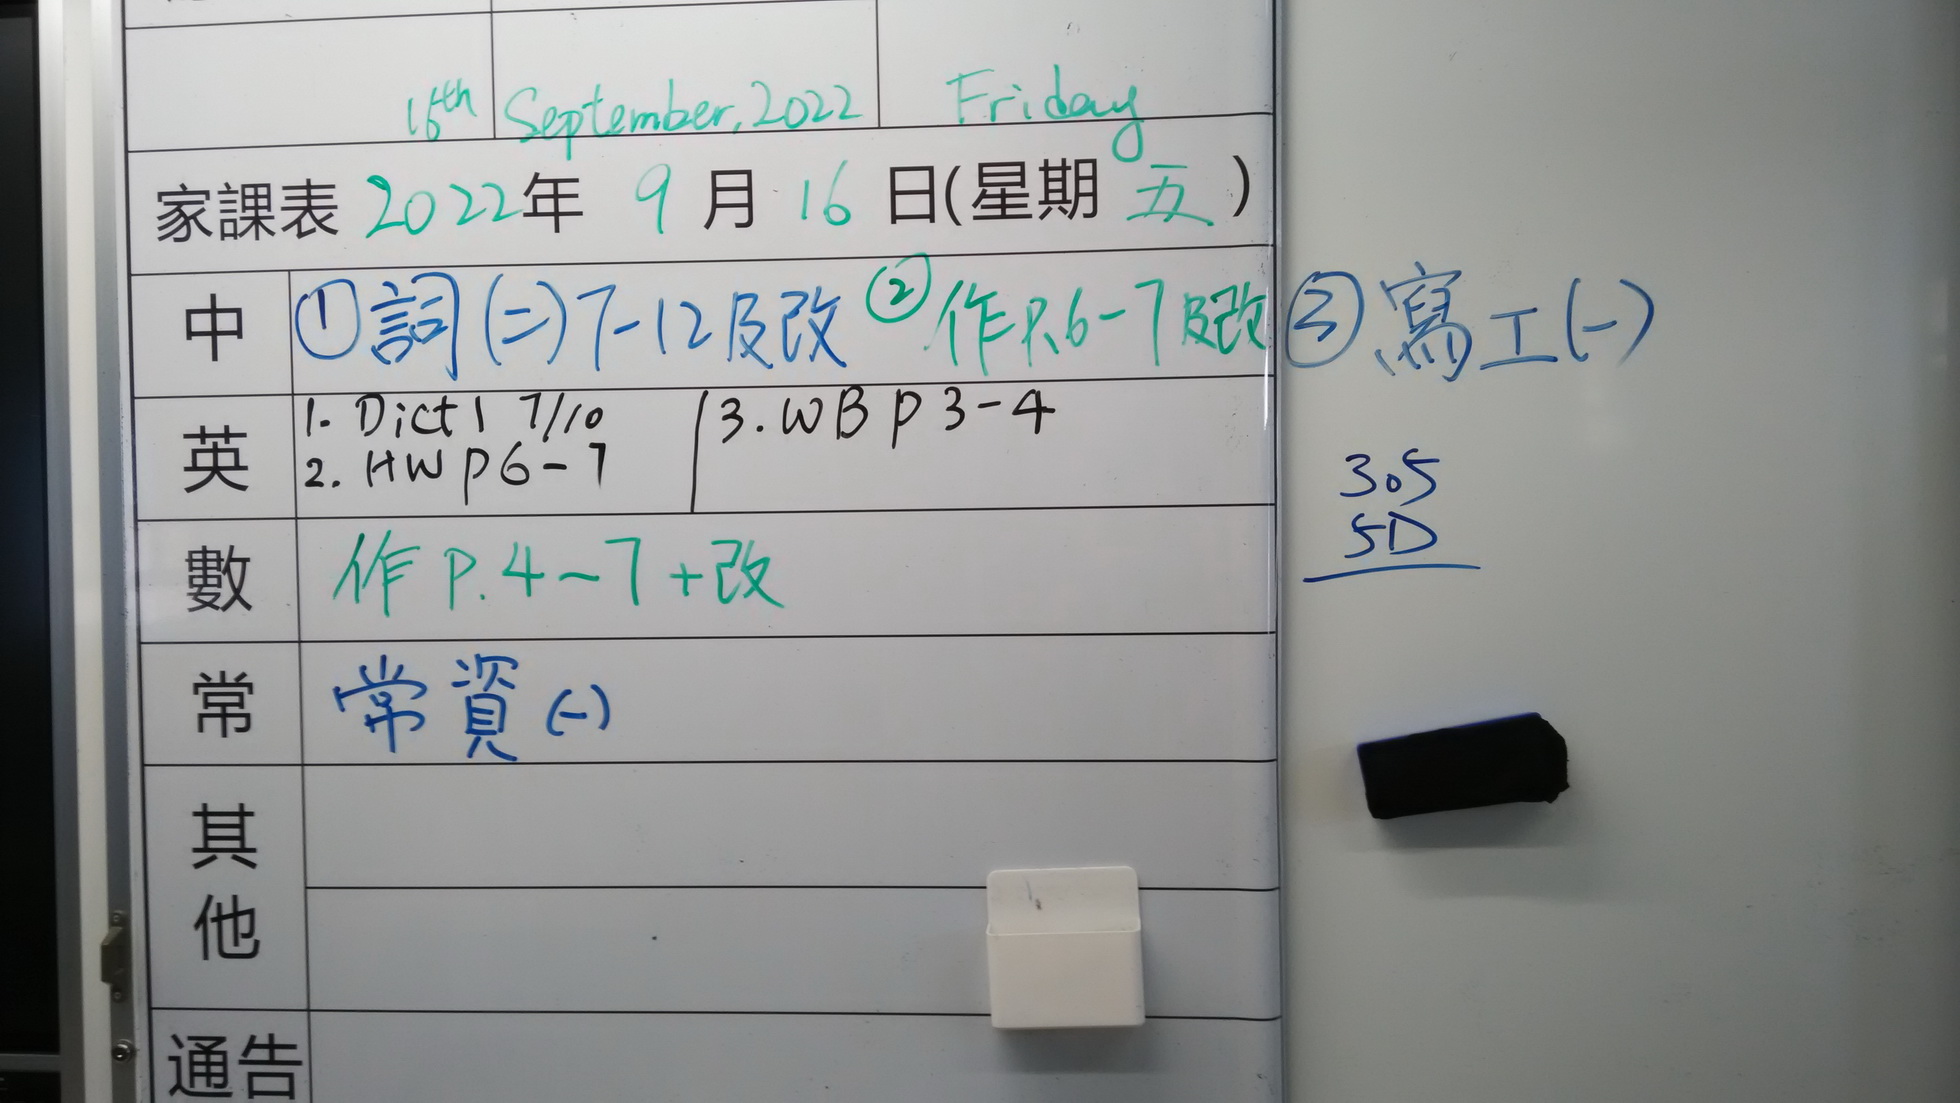 16th September, 2022 Friday
家課表 2022年 9月 16日(星期五)
中 ①詞(二)7-12及改 ②作P.6-7及改 ③寫工(一)
英 1. Dict 1 7/10 3. WB p 3-4
2. HW p 6-7
305
5D
數 作 P. 4~7+改
常 常資(一)
其他
通告